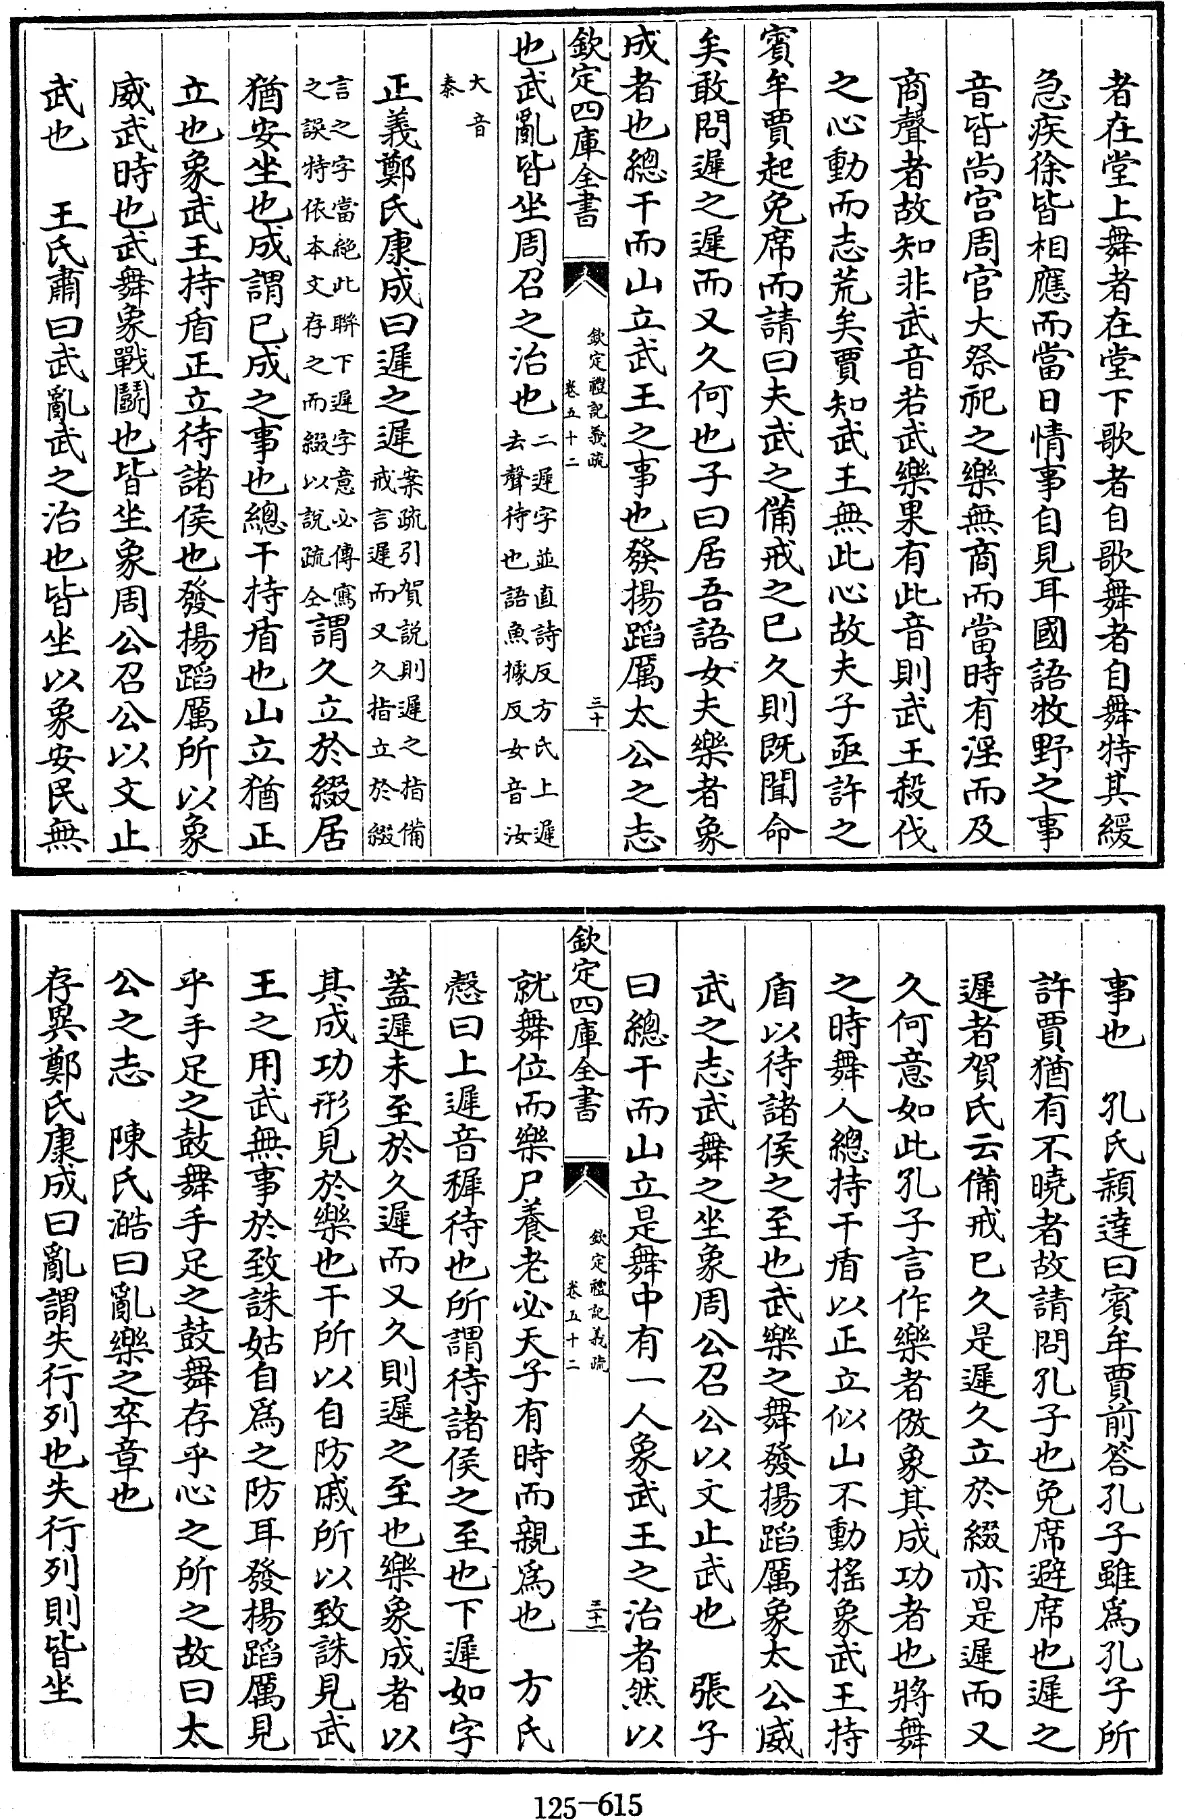 者在堂上舞者在堂下歌者自歌舞者自舞特其緩
急疾徐皆相應而當日情事自見耳國語牧野之事
音皆尚宫周官大祭祀之樂無商而當時有淫而及
商聲者故知非武音若武樂果有此音則武王殺伐
之心動而志荒矣賈知武王無此心故夫子亟許之
賓牟賈起免席而請曰夫武之備戒之已久則既聞命
矣敢問遲之遲而又久何也子曰居吾語女夫樂者象
成者也總干而山立武王之事也發揚蹈厲太公之志
欽定四庫全書
欽定禮記義疏
卷五十二
三十
也武亂皆坐周召之治也二遲字並直詩反方氏上遲
去聲待也語魚據反女音汝
大音
泰
正義鄭氏康成曰遲之遲案疏引賀説則遲之指備
戒言遲而又久指立於綴
言之字當絶此聨下遲字意必傳寫
之誤特依本文存之而綴以説疏仝謂久立於綴居
猶安坐也成謂已成之事也總干持盾也山立猶正
立也象武王持盾正立待諸侯也發揚蹈厲所以象
威武時也武舞象戰鬭也皆坐象周公召公以文止
武也　王氏肅曰武亂武之治也皆坐以象安民無
事也　孔氏穎達曰賓牟賈前答孔子雖為孔子所
許賈猶有不曉者故請問孔子也免席避席也遲之
遲者賀氏云備戒已久是遲久立於綴亦是遲而又
久何意如此孔子言作樂者倣象其成功者也將舞
之時舞人總持干盾以正立似山不動搖象武王持
盾以待諸侯之至也武樂之舞發揚蹈厲象太公威
武之志武舞之坐象周公召公以文止武也　張子
曰總干而山立是舞中有一人象武王之治者然以
欽定四庫全書
欽定禮記義疏
卷五十二
三十一
就舞位而樂尸養老必天子有時而親為也　方氏
慤曰上遲音穉待也所謂待諸侯之至也下遲如字
蓋遲未至於久遲而又久則遲之至也樂象成者以
其成功形見於樂也干所以自防戚所以致誅見武
王之用武無事於致誅姑自為之防耳發揚蹈厲見
乎手足之鼓舞手足之鼓舞存乎心之所之故曰太
公之志　陳氏澔曰亂樂之卒章也
存異鄭氏康成曰亂謂失行列也失行列則皆坐
125-615